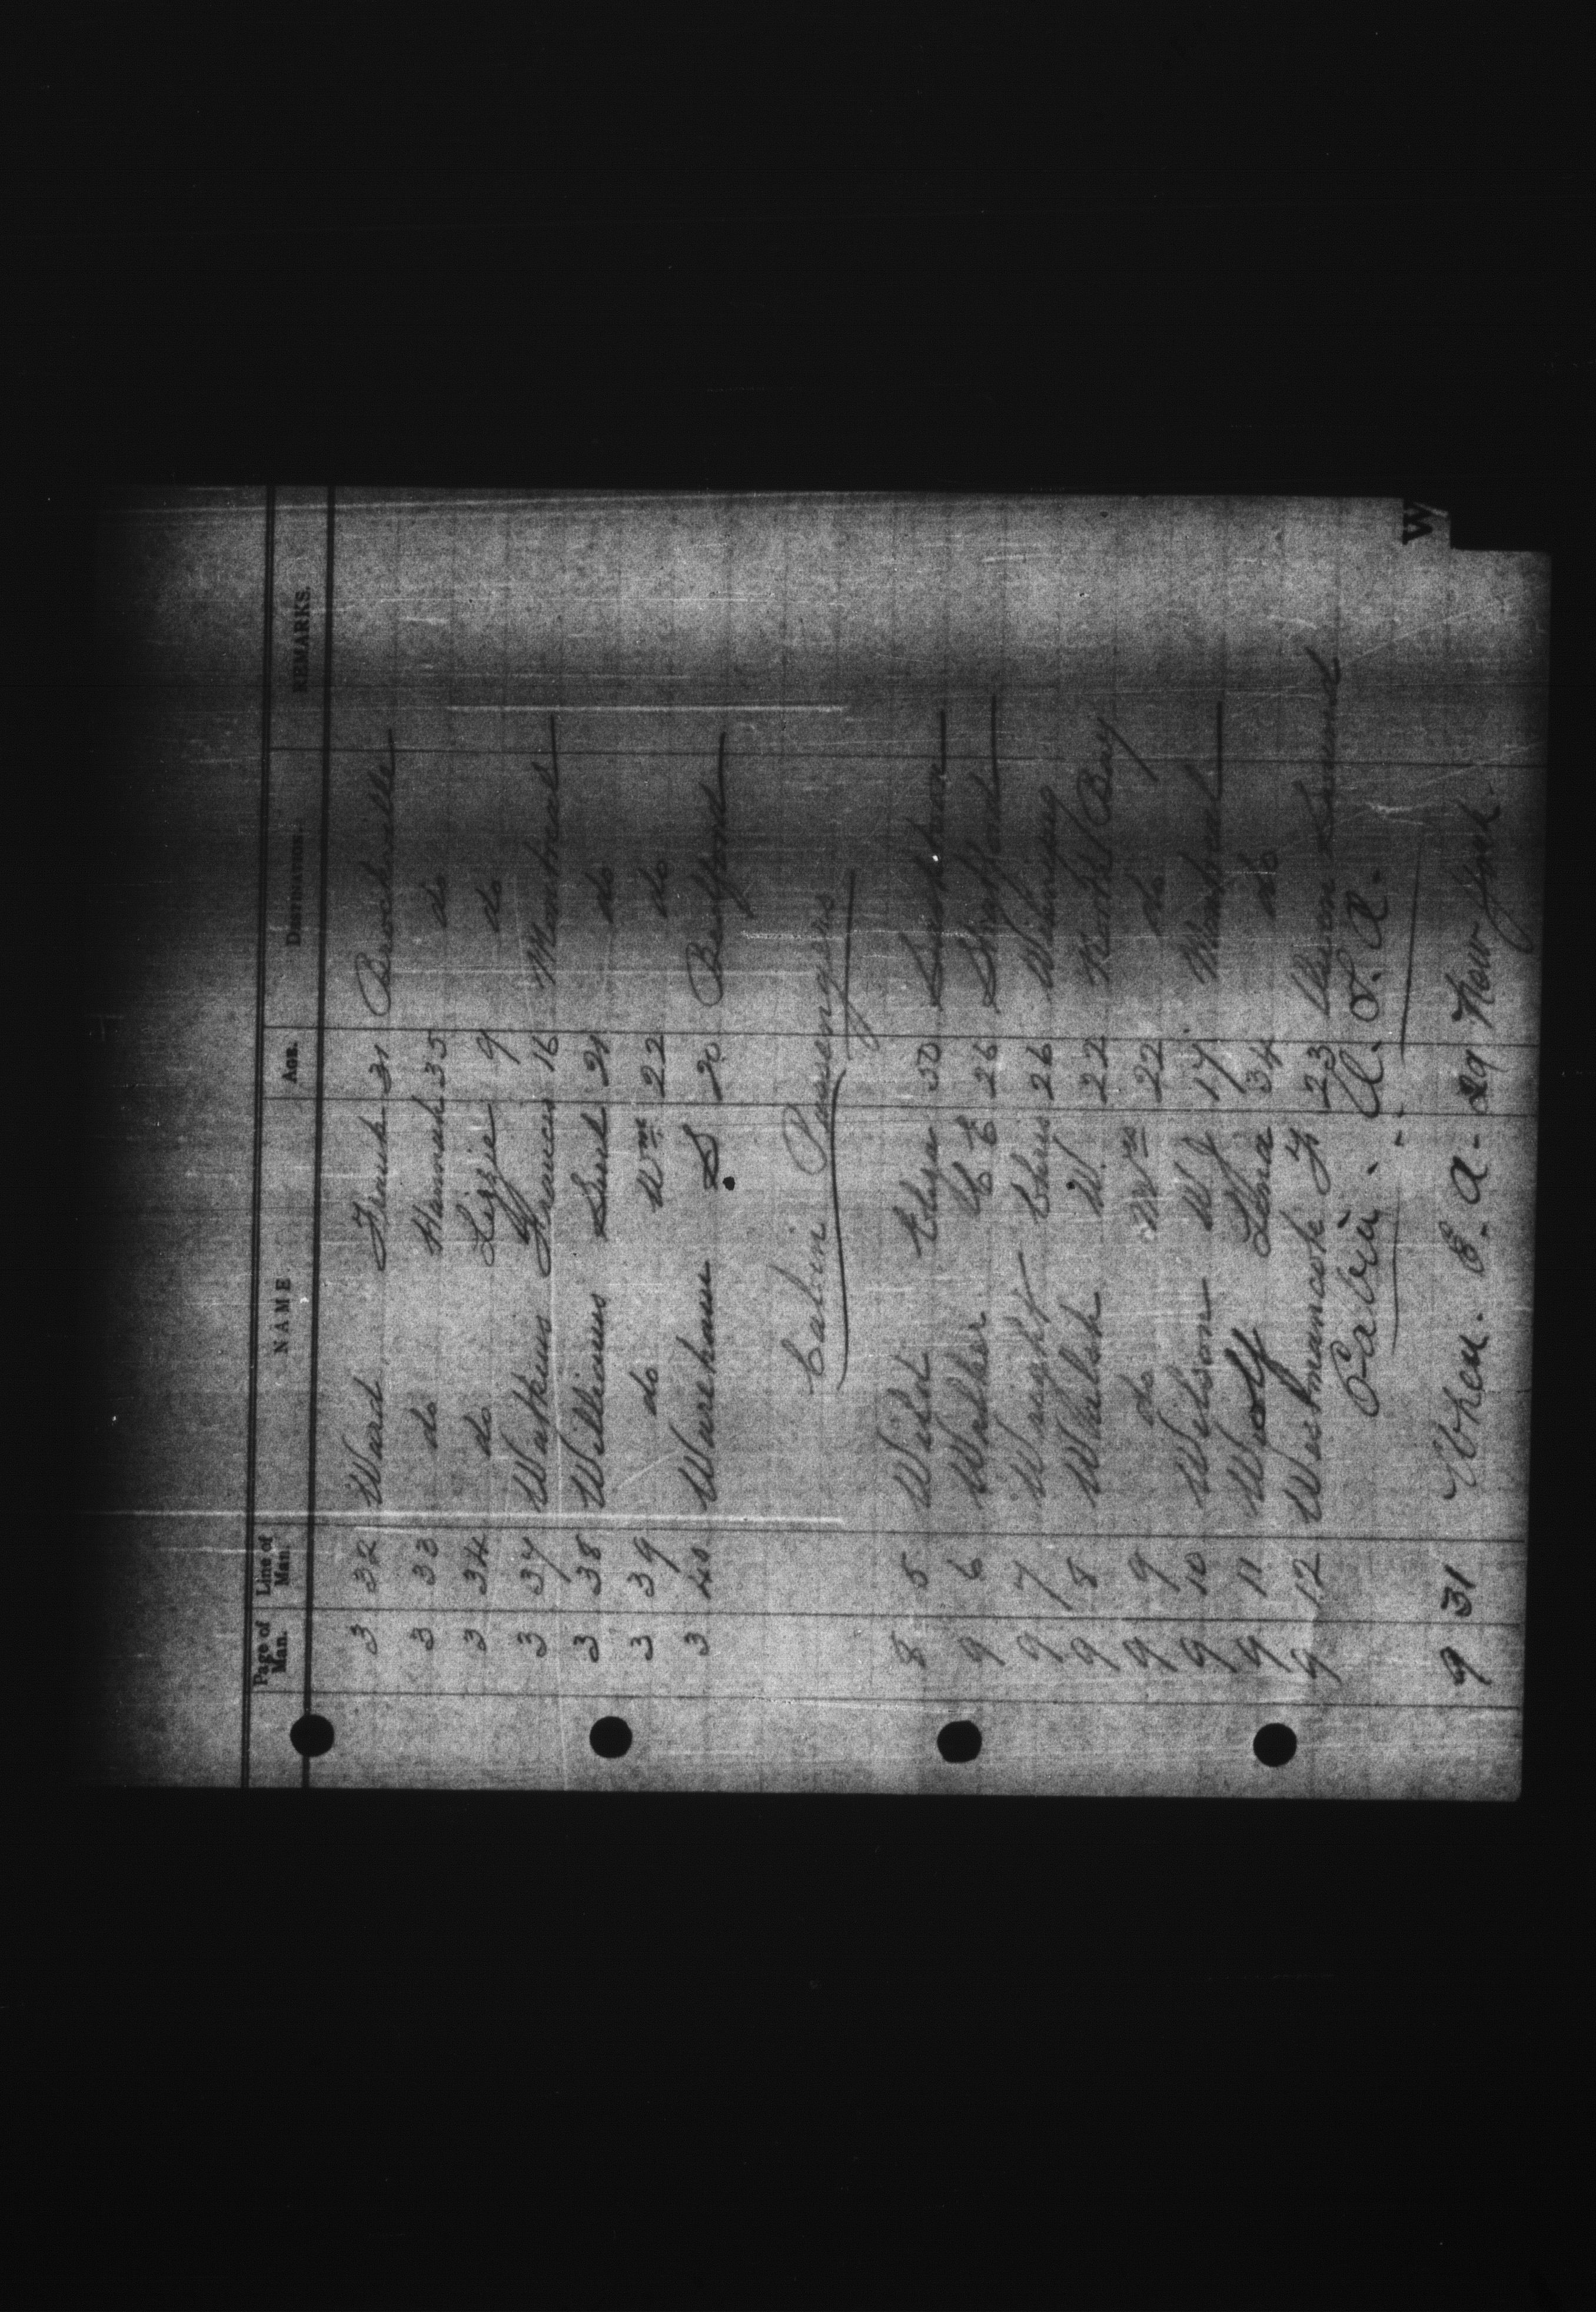 Page of Man. Line of Man. NAME AGE. DESTINATION. REMARKS.
3 32 Ward Frank 31 Brockville
3 33 do Hannah 35 do
3 34 do Lizzie 9 do
3 37 Watkins Frances 16 Montreal
3 38 Williams 21 do
3 39 do Wm 22 do
3 40 Wareham S 20 Brantford
Cabin Passengers
8 5 Wild 50
9 6 Walker 26 Stratford
9 7 Wright Chas 26 Winnipeg
9 8 Walsh W. 22 Bay
9 9 do Mrs 22 do
9 10 Wilson W J 17 Montreal
9 11 Woolf 34 do
9 12 Westmancoth 23 Owen Sound
Cabin. U. S. A.
9 31 E. A. 29 New York.
W